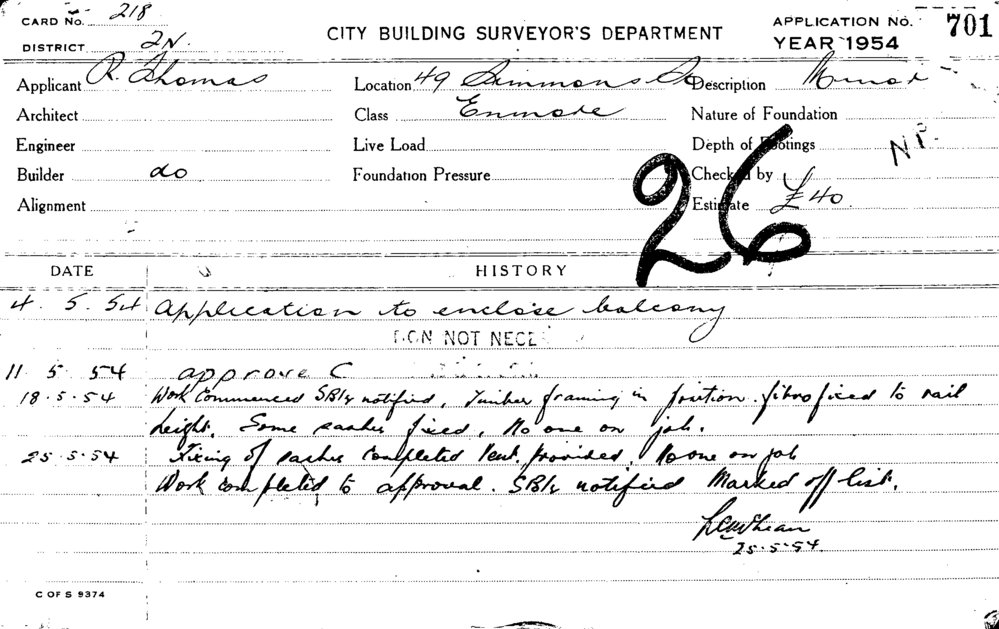 CARD No. 218
DISTRICT 2N.
CITY BUILDING SURVEYOR'S DEPARTMENT
APPLICATION No. 701
YEAR 1954
Applicant R. Thomas
Location 49 Simmons St
Description Minor
Architect
Class Enmore
Nature of Foundation
Engineer
Live Load
Depth of Footings
NP.
Builder do
Foundation Pressure
Checked by
Alignment
Estimate £40.
26
DATE HISTORY
4.5.54 Application to enclose balcony
NOT NECE
11 5 54 approve C
18.5.54 Work Commenced notified, Timber framing in position. fibro fixed to rail
height. Some sashes fixed, No one on job.
25.5.54 Fixing of sashes completed Vent. provided, No one on job
Work completed to approval. notified Marked off list.
25.5.54.
C OF S 9374